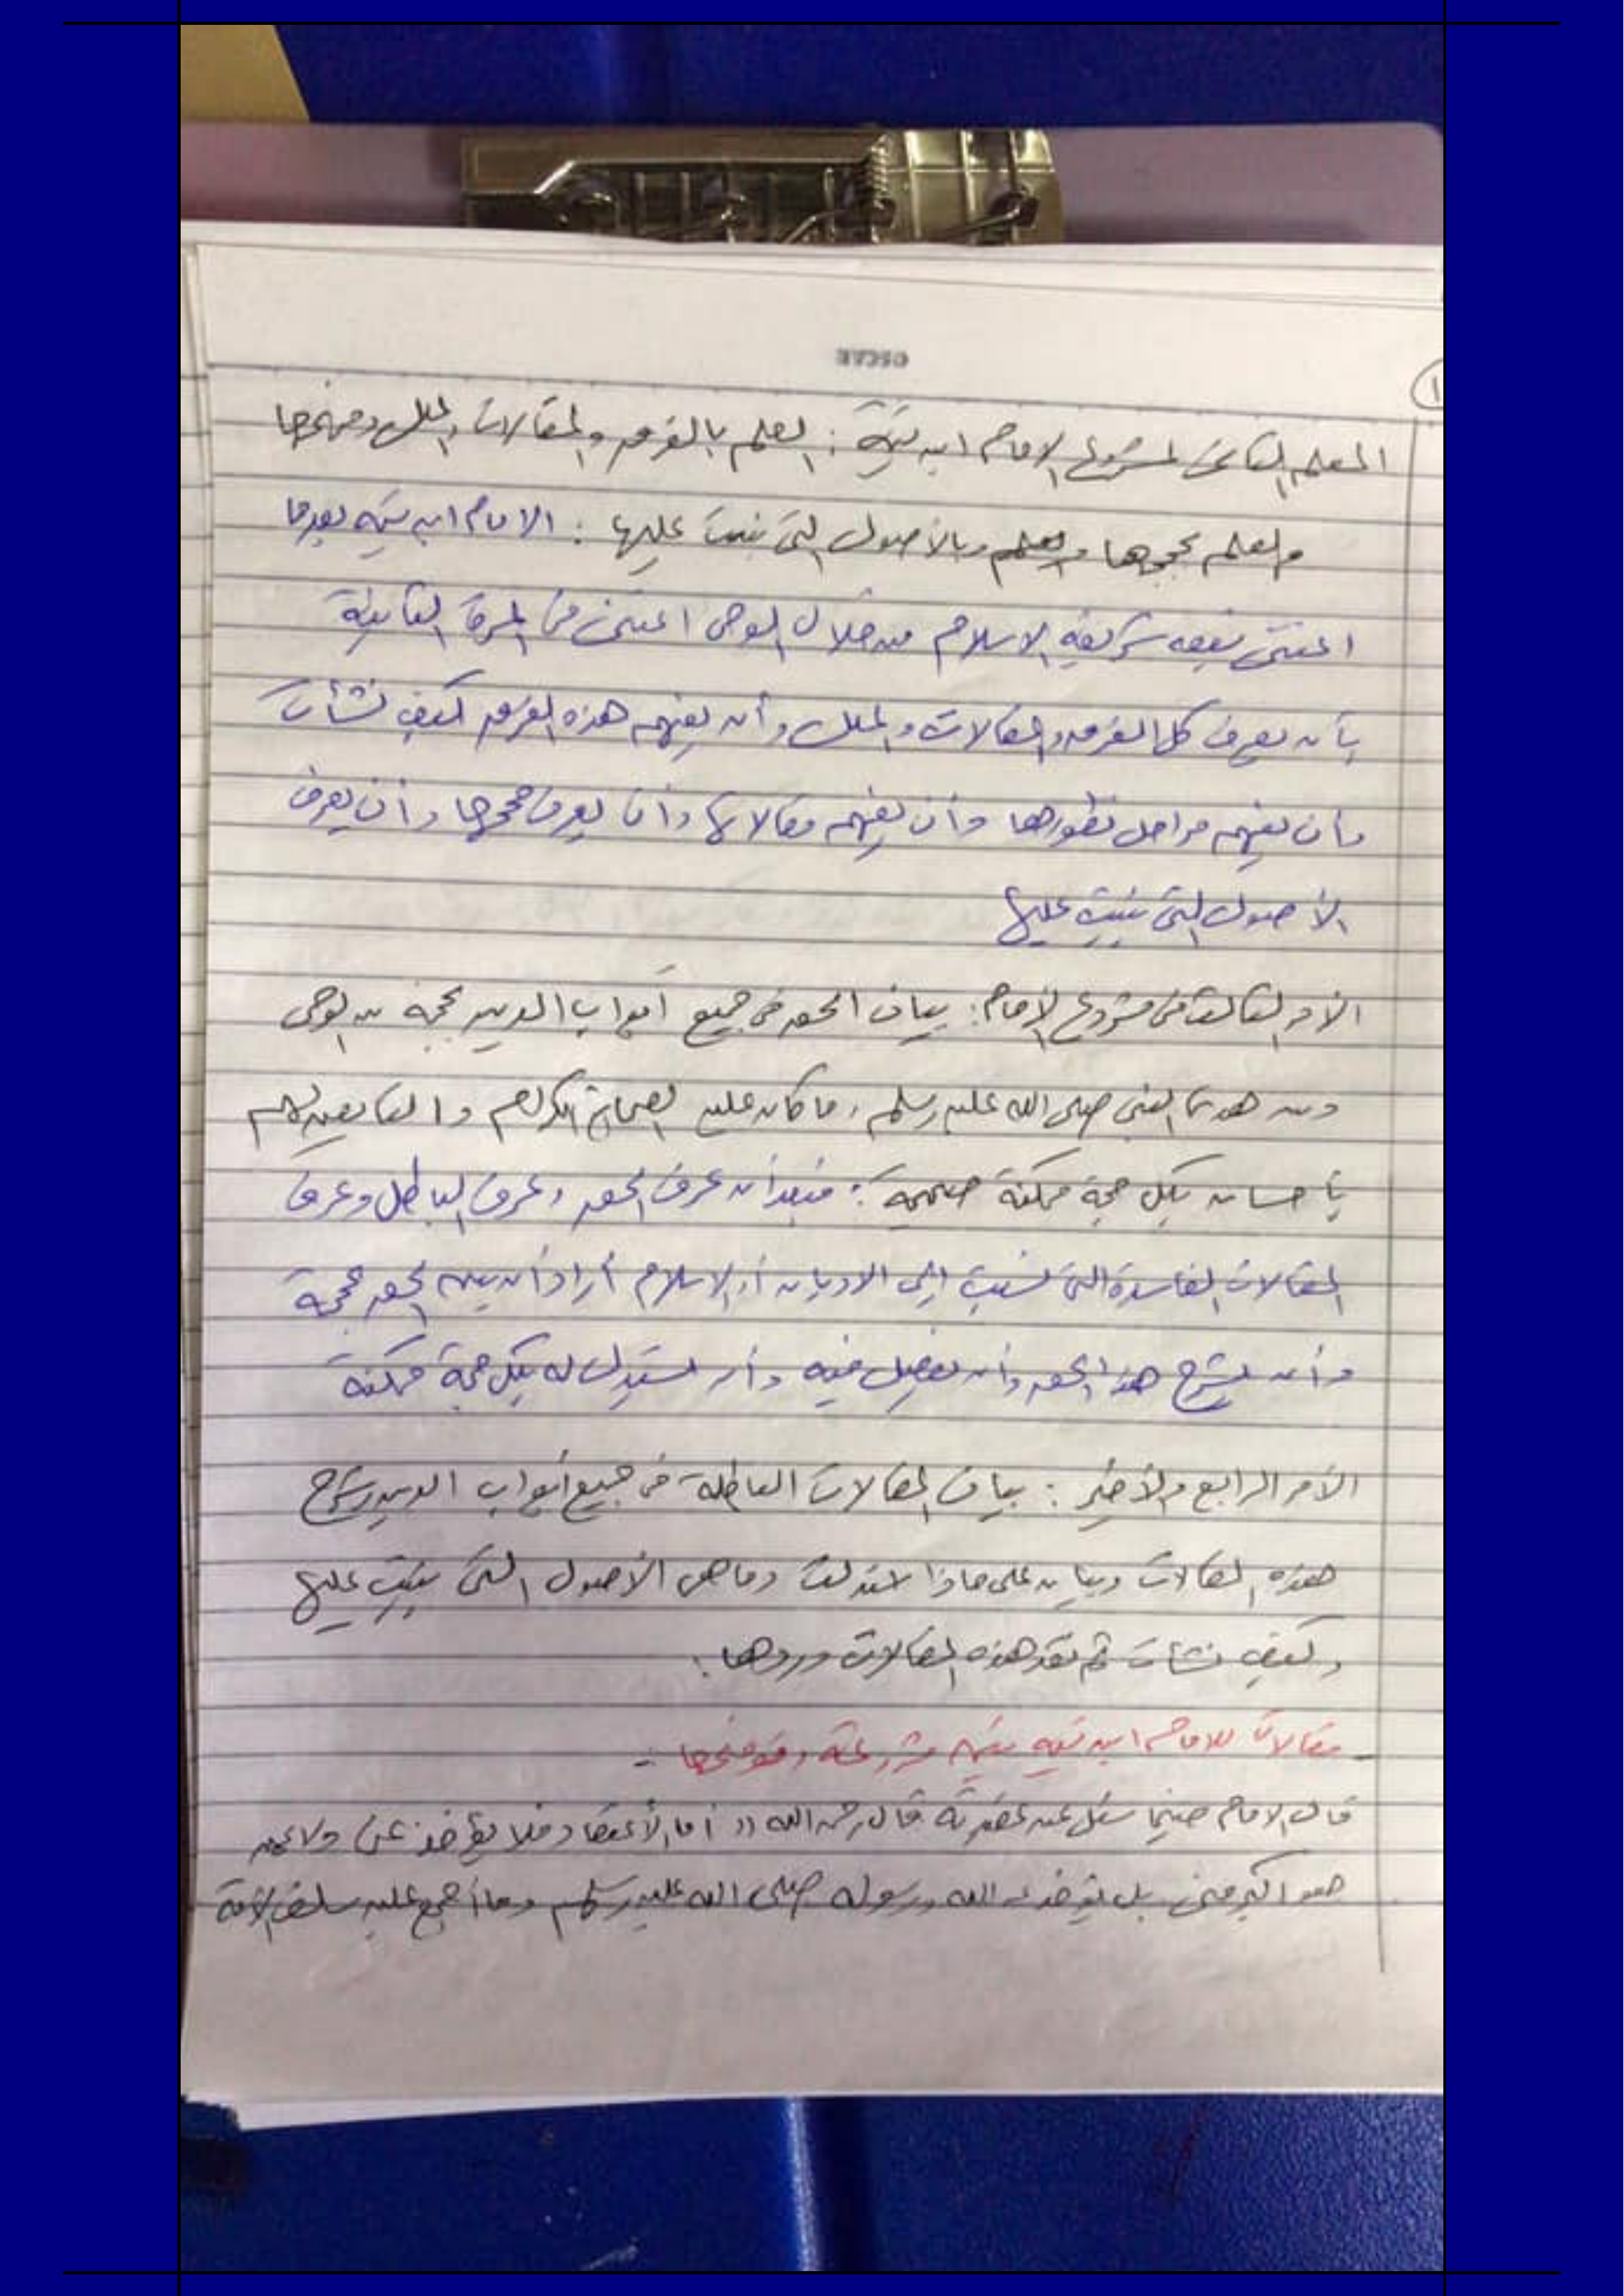 OSCAR
١
المعلم الثاني لمشروع الإمام ابن تيمية : العلم بالفرق والمقالات والملل وفهمها
والعلم بحججها والعلم وبالأصول التي بنيت عليها : الامام ابن تيمية بعدما
اعتنى بفهم شريعة الاسلام من خلال الوحي اعتنى في المرة الثانية
بأن يعرف كل الفرق والمقالات والملل وأن يفهم هذه الفرق كيف نشأت
وأن يفهم مراحل تطورها وأن يفهم مقالاتها وأن يعرف حججها وأن يعرف
الأصول التي بنيت عليها
الأمر الثالث في مشروع الإمام : بيان الحق في جميع أبواب الدين بحجة من الوحي
ومن هدي النبي صلى الله عليه وسلم وما كان عليه الصحابة الكرام والتابعين لهم
بإحسان بكل حجة ممكنة صحيحة : فبعد أن عرف الحق وعرف الباطل وعرف
المقالات الفاسدة التي نسبت إلى الاديان أو الاسلام أراد أن يبين الحق بحججه
وأن يشرح هذا الحق وأن يفصل فيه وأن يستدل له بكل حجة ممكنة
الأمر الرابع والأخير : بيان المقالات الباطلة في جميع أبواب الدين وشرح
هذه المقالات وبيان على ماذا استدلت وما هي الأصول التي بنيت عليها
وكيف نشأت ثم نقد هذه المقالات وردها .
- مقالات للامام ابن تيمية تبين مشروعه وتوضحها :-
قال الامام حينما سئل عن عقيدته قال رحمه الله (( أما الأعتقاد فلا يؤخذ عني ولا عمن
هو أكبر مني بل يؤخذ عن الله ورسوله صلى الله عليه وسلم وما أجمع عليه سلف الأمة